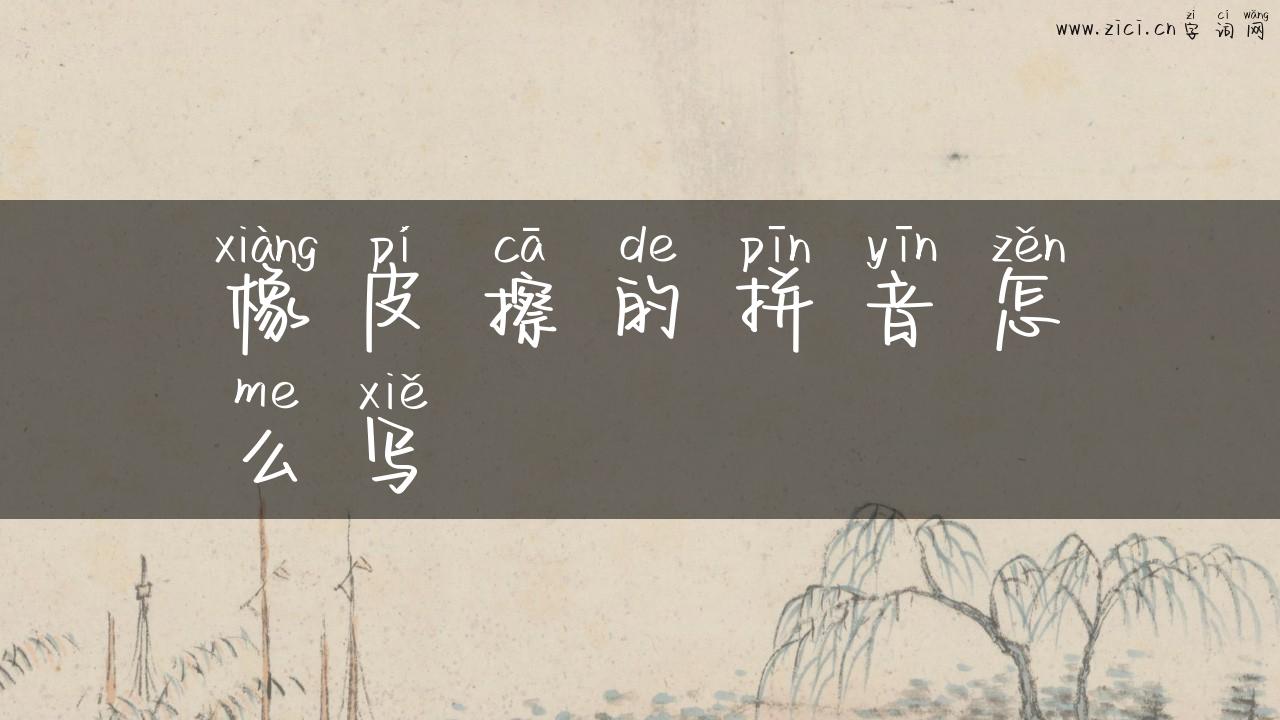 zì cí wǎng
www.zici.cn 字 词 网
xiàng pí cā de pīn yīn zěn
橡 皮 擦 的 拼 音 怎
me xiě
么 写